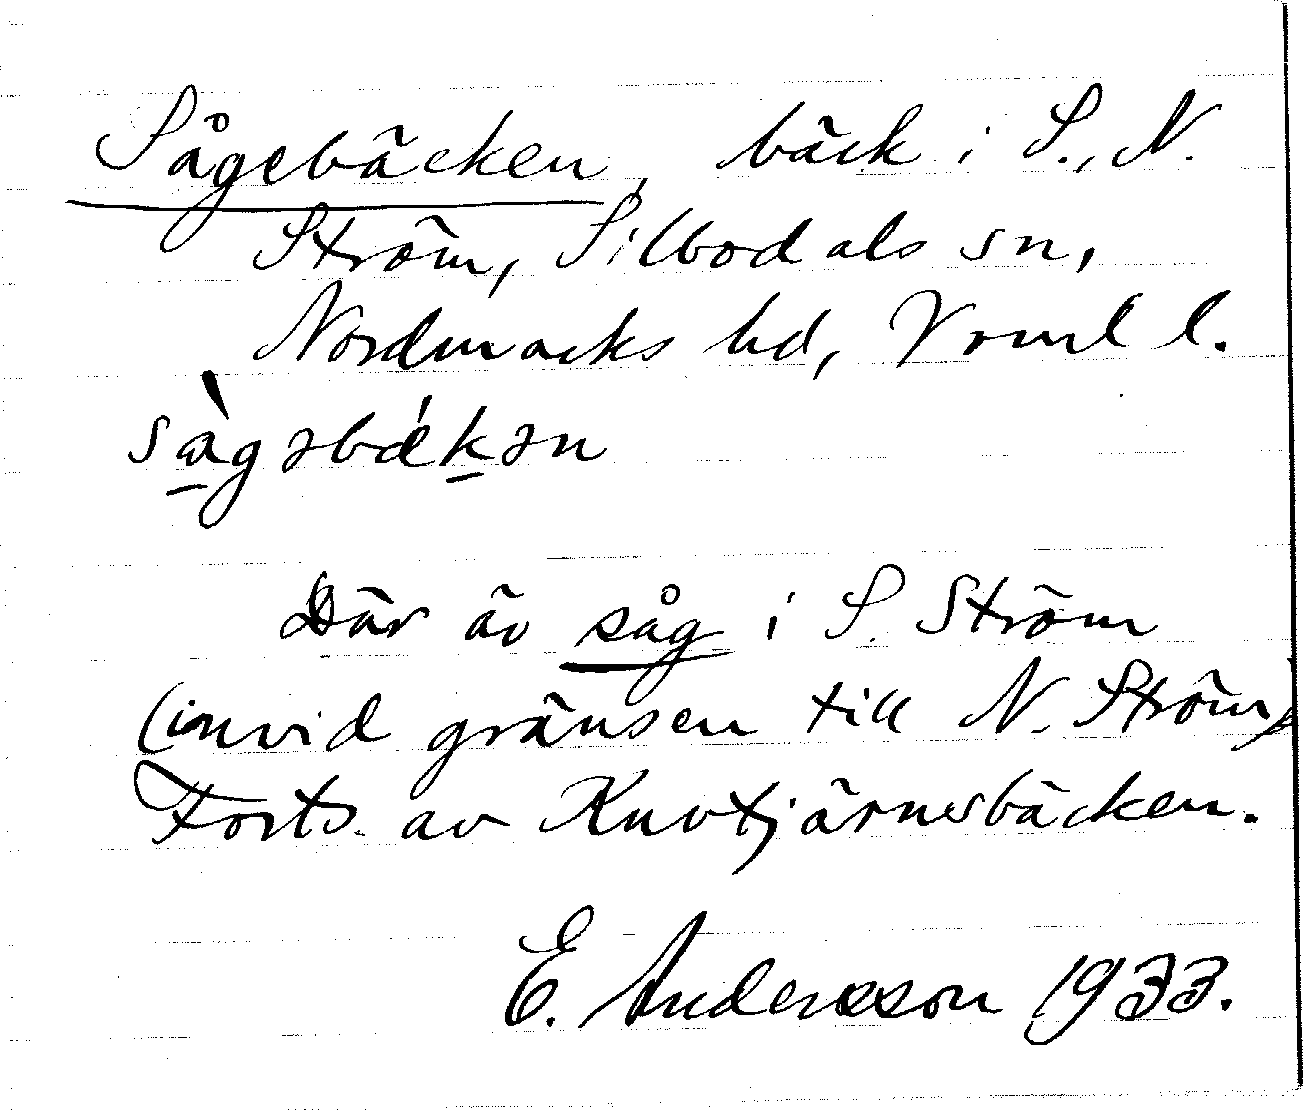 Sågebäcken, bäck i S., N.
Ström, Silbodals sn,
Nordmarks hd, Vrml l.
sàgəbǽkən
Där är såg i S. Ström
(invid gränsen till N. Ström)
Forts. av Knvtjärnsbäcken.
E. Andersson 1933.